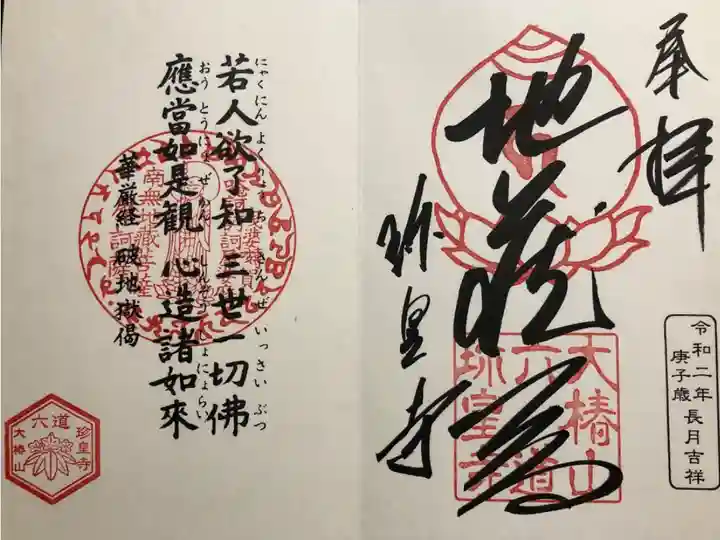 奉拝
地蔵尊
珎皇寺
大椿山
六道
珎皇寺
令和二年
庚子歳 長月吉祥
にゃくにん よくりょうち さんぜ いっさいぶつ
若人欲了知 三世一切佛
おうとうにょぜかん しんぞうしょにょらい
應當如是観 心造諸如來
華厳経 破地獄偈
南無地蔵菩薩
六道
珍皇寺
大椿山